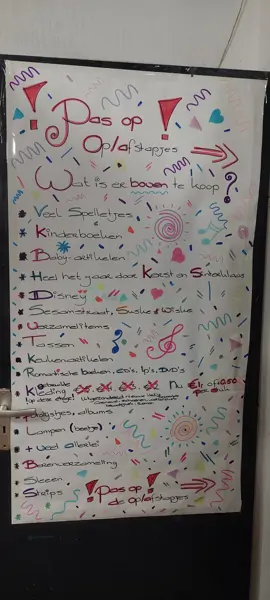 ! Pas op !
Op/afstapjes
Wat is er boven te koop ?
* Veel Spelletjes
* Kinderboeken
* Baby-artikelen
* Heel het jaar door Kerst en Sinterklaas
* Disney
* Sesamstraat, Suske & Wiske
* Verzamelitems
* Tassen
* Keukenartikelen
* Romantische boeken, cd's, lp's, DVD's
Kleding Nu €1,- of €0,50
per stuk
albums
Lampen (beetje)
Berenverzameling
Sleeën
Strips
! Pas op !
de op/afstapjes